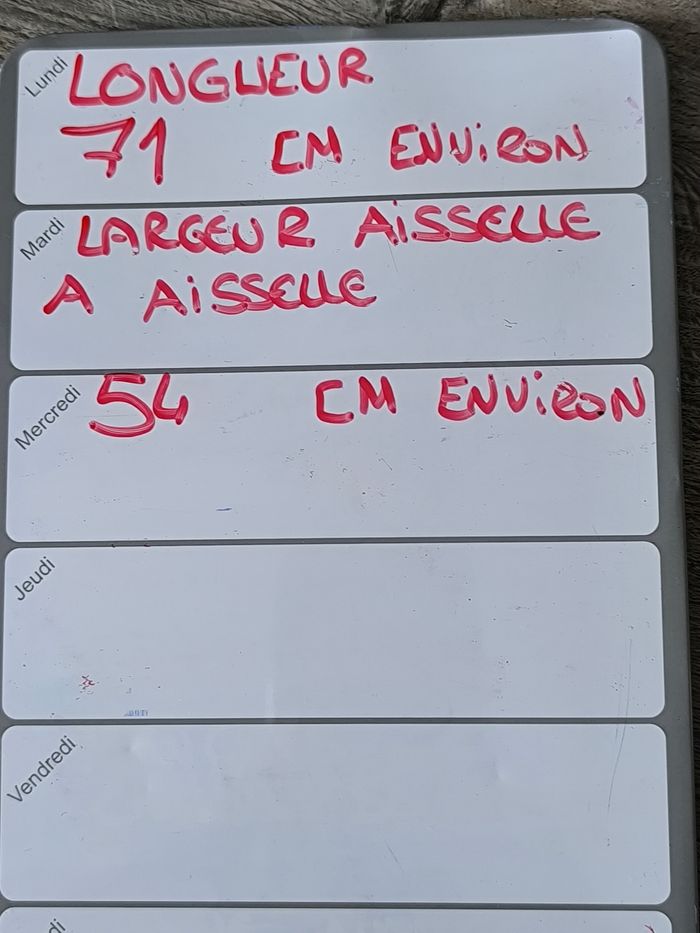 Lundi
LONGUEUR
71 CM ENViRON
Mardi
LARGEUR AiSSELLE
A AiSSELLE
Mercredi
54 CM ENViRON
Jeudi
Vendredi
di